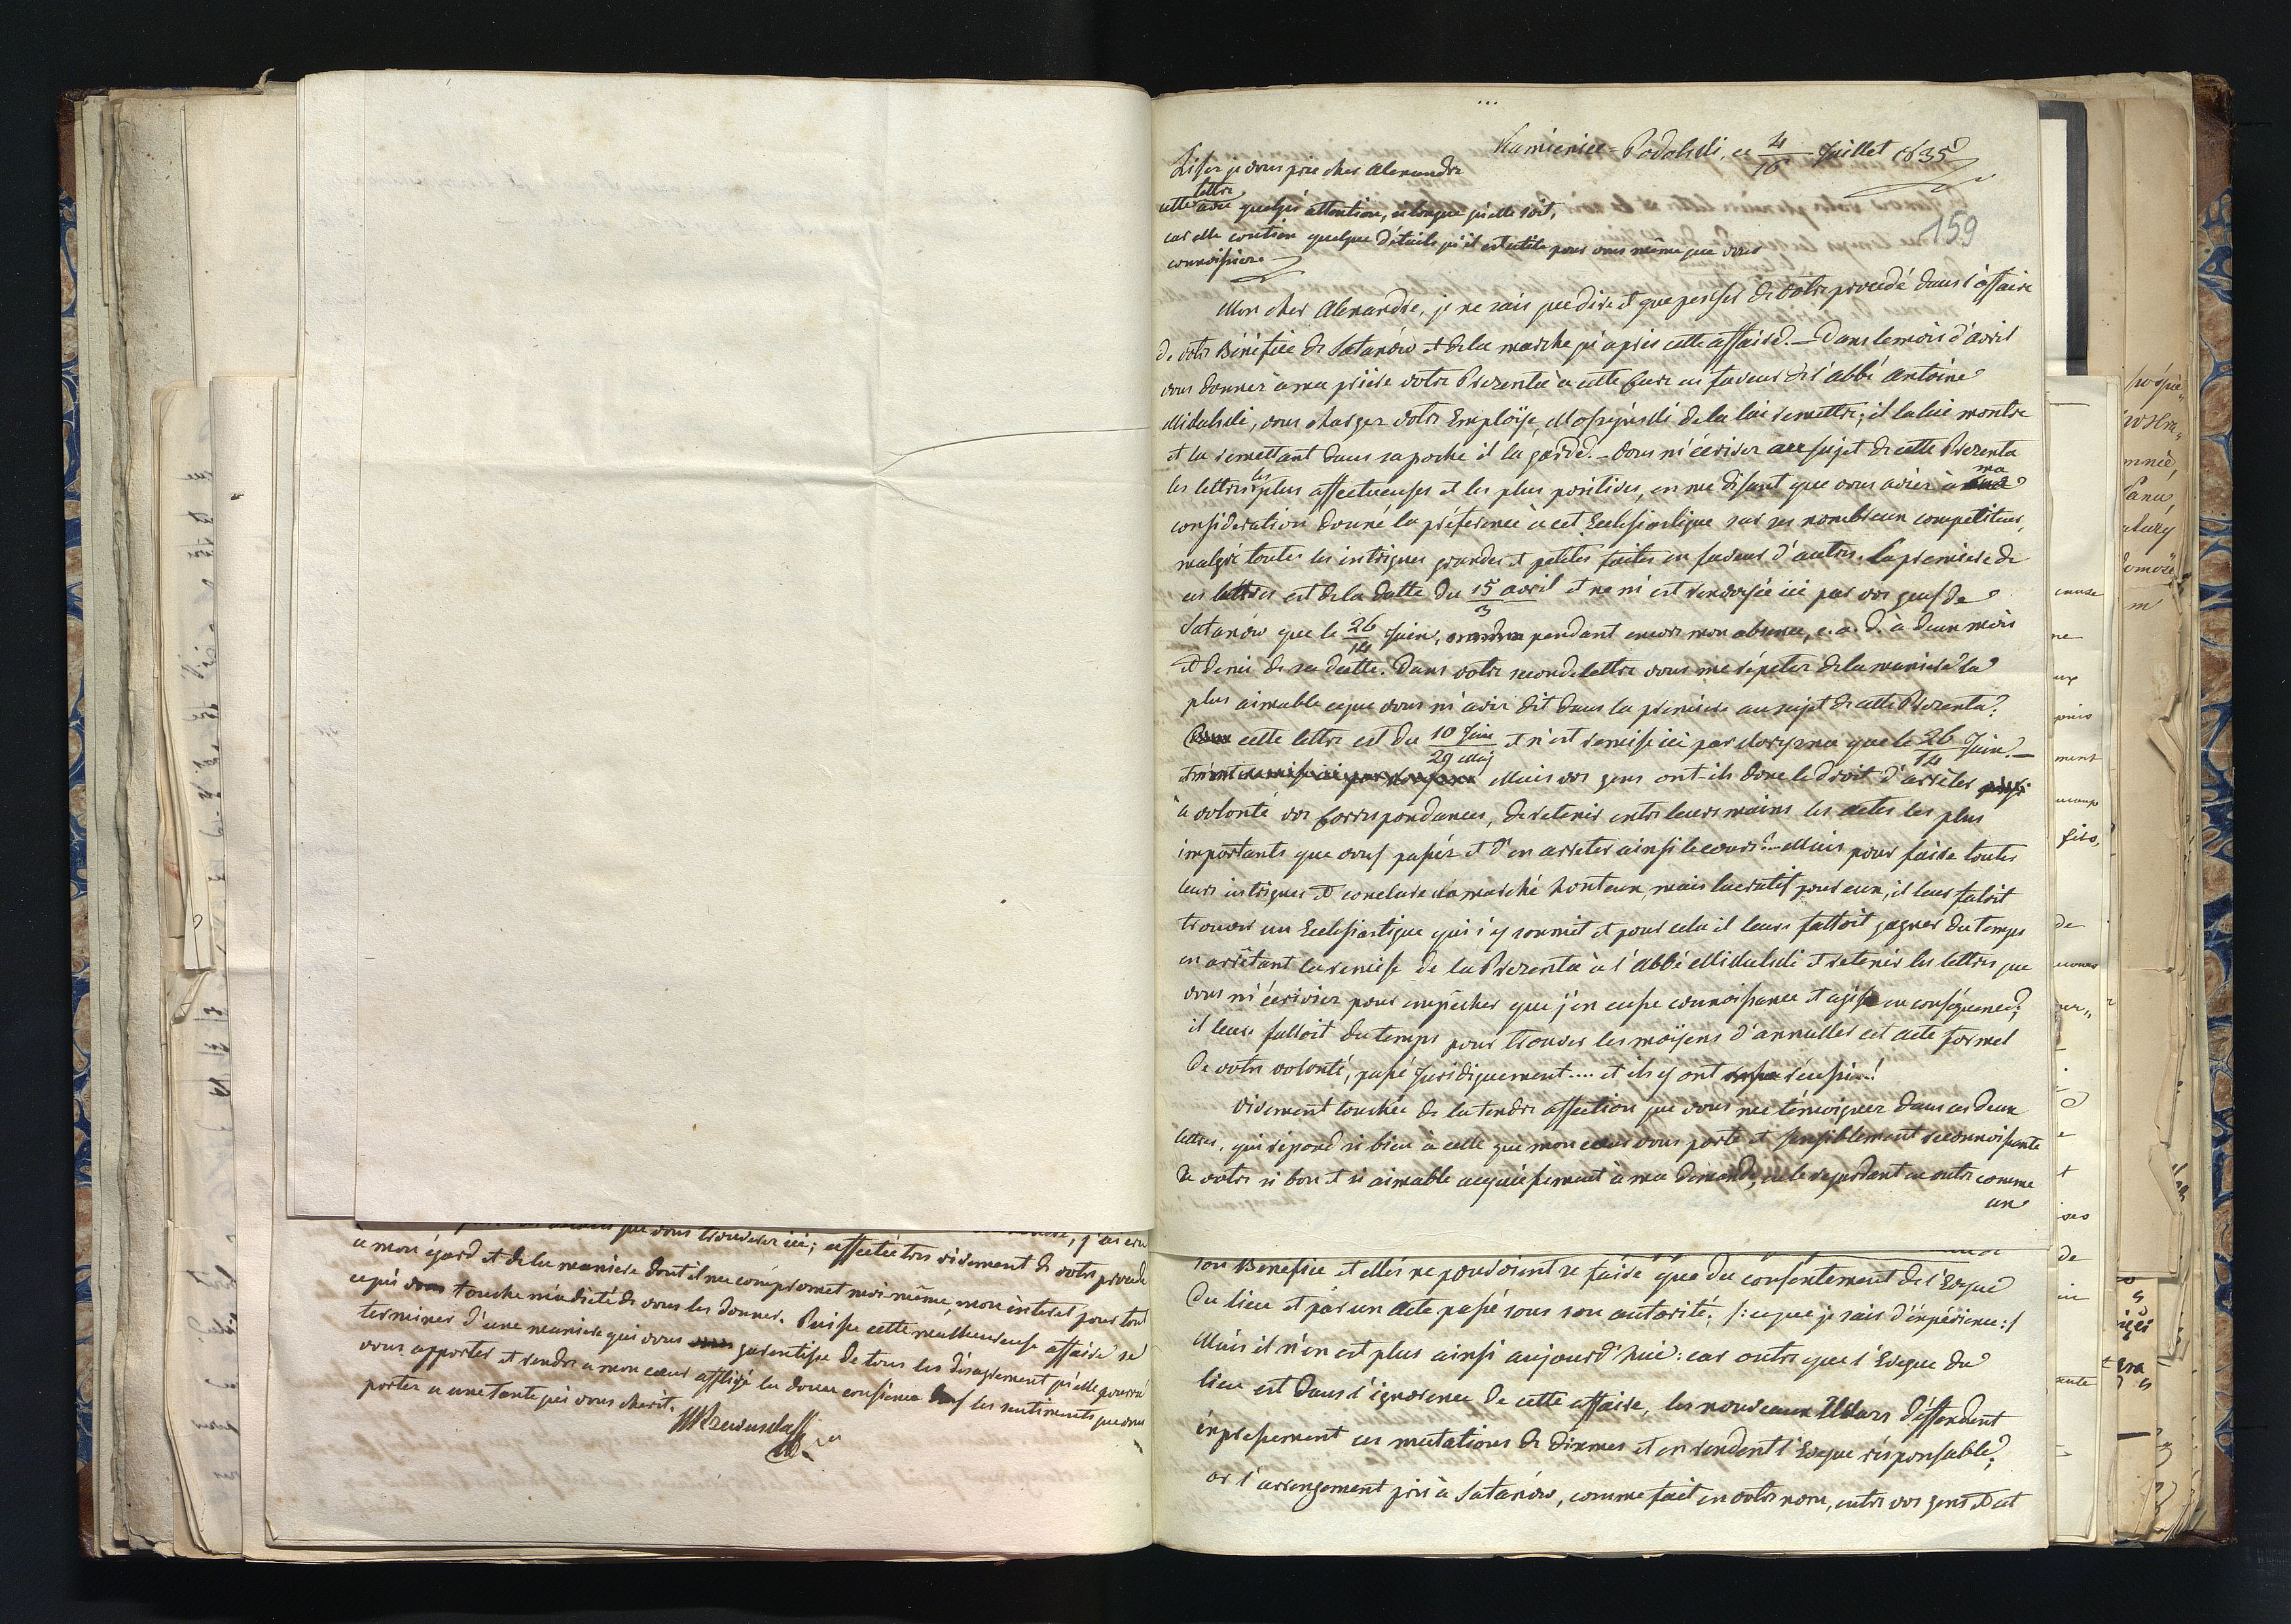 que vous trouverez ici; affectée très vivement de votre procédé
a mon égard et de la maniere dont il me compromet moi-même, mon interet pour tout
ce qui touche m'a dicté de vous les donner. Puisse cette malheureuse affaire se
terminer d'une maniere qui vous garentisse de tous les désagrement qu'elle pourra
vous apporter et rendre a mon cœur affligé la douce confience les sentiments que vous
portez a une tante qui vous cherit.
Kamieniec-Podolski, ce 4/16 Juillet 1835
Lisez je vous prie cher Alexandre
cette lettre avec quelque attention, si longue qu'elle soit,
car elle contien quelque détails qu'il est utile pour vous même que vous
connoissiez
159
Mon cher Alexandre, je ne sais que dire et que penser de votre procédé dans l'affaire
de votre Bénéfice de Satanów et de la marche qu'a pris cette affaire. – Dans le mois d'avril
vous donnez a ma prière votre Prezenta à cette Cure en faveur de l'abbé Antoine
Mikulski, vous chargez votre Employé, de la lui remettre; il la lui montre
et la remettant dans sa poche il la garde. – Vous m'écrivez au sujet de cette Prezenta
les lettres les plus affectueuses et les plus positives, en me disant que vous aviez à ma
consideration donné la préference à cet Ecclesiastique sur ses nombreux competiteurs,
malgré toutes les intrigues grandes et petites faites en faveur d'autres. La premiere de
ces lettres est de la datte du 15/3 avril et ne m'est renvoyée ici par vos gens de
Satanów que le 26/14 Juin, pendant encore mon absence, c. a. d. à deux mois
et demi de sa datte. Dans votre seconde lettre vous me répetez de la maniere la
plus aimable ce que vous m'aviez dit dans la premiere au sujet de cette Prezenta;
cette lettre est du 10 Juin/29 Maj et n'est remise ici par que le 26/14 Juin. –
Mais vos gens ont-ils donc le droit d'arrêter
à volonté vos Correspondances, de retenir entre leurs mains les actes les plus
importants que vous passéz et d'en arreter ainsi le cours? – Mais pour faire toutes
leurs intrigues et conclure un marché honteux, mais lucratif pour eux, il leur faloit
trouver un Ecclesiastique qui s'y soumit et pour cela il leur falloit gagner du temps
en arrêtant la remise de la Prezenta à l'Abbé Mikulski et retenir les lettres que
vous m'écriviez pour empêcher que j'en eusse connoissance et agisse en conséquence;
il leur falloit du temps pour trouver les moÿens d'annuller cet acte formel
de votre volonté, passé Juridiquement.... et ils y ont réussi...!
Vivement touchée de la tendre affection que vous me témoignez dans ces deux
lettres, qui répond si bien à celle que mon cœur vous porte et sensiblement reconnoissante
de votre si bon et si aimable acquiéssement à ma demande, en le regardant en outre comme
un
son Benefice et elles ne pouvoient se faire que du consentement de l'Eveque
du lieu et par un acte passé sous son autorité; /: ce que je sais d'expérience:/
Mais il n'en est plus ainsi aujourd'hui: car outre que l'Eveque du
lieu est dans l'ignorence de cette affaire, les nouveaux Ukazs déffendent
expressement ces mutations de dixmes et en rendent l'Eveque résponsable;
or l'arrengement pris à Satanów, comme fait en votre nom, entre vos gens et cet